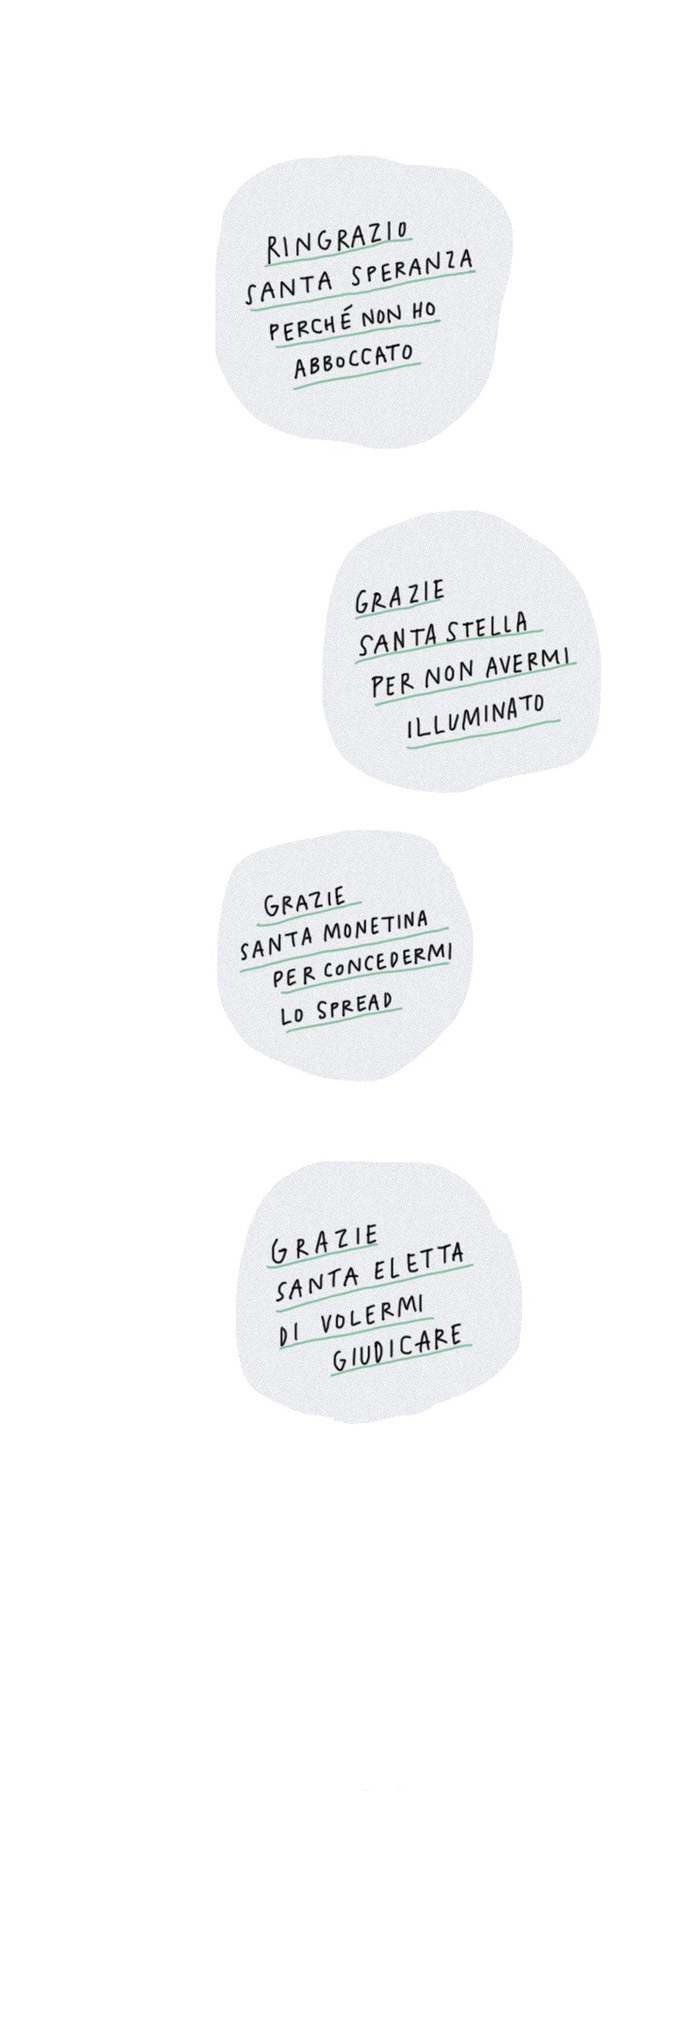 RINGRAZIO
SANTA SPERANZA
PERCHÉ NON HO
ABBOCCATO
GRAZIE
SANTA STELLA
PER NON AVERMI
ILLUMINATO
GRAZIE
SANTA MONETINA
PER CONCEDERMI
LO SPREAD
GRAZIE
SANTA ELETTA
DI VOLERMI
GIUDICARE